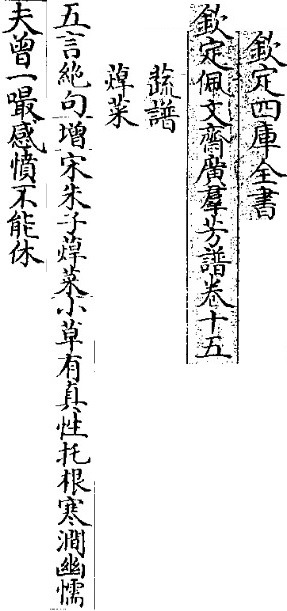 欽定四庫全書
欽定佩文齋廣羣芳譜卷十五
蔬譜
焯菜
五言絶句增宋朱子焯菜小草有真性托根寒澗幽懦
夫曾一嘬感憤不能休